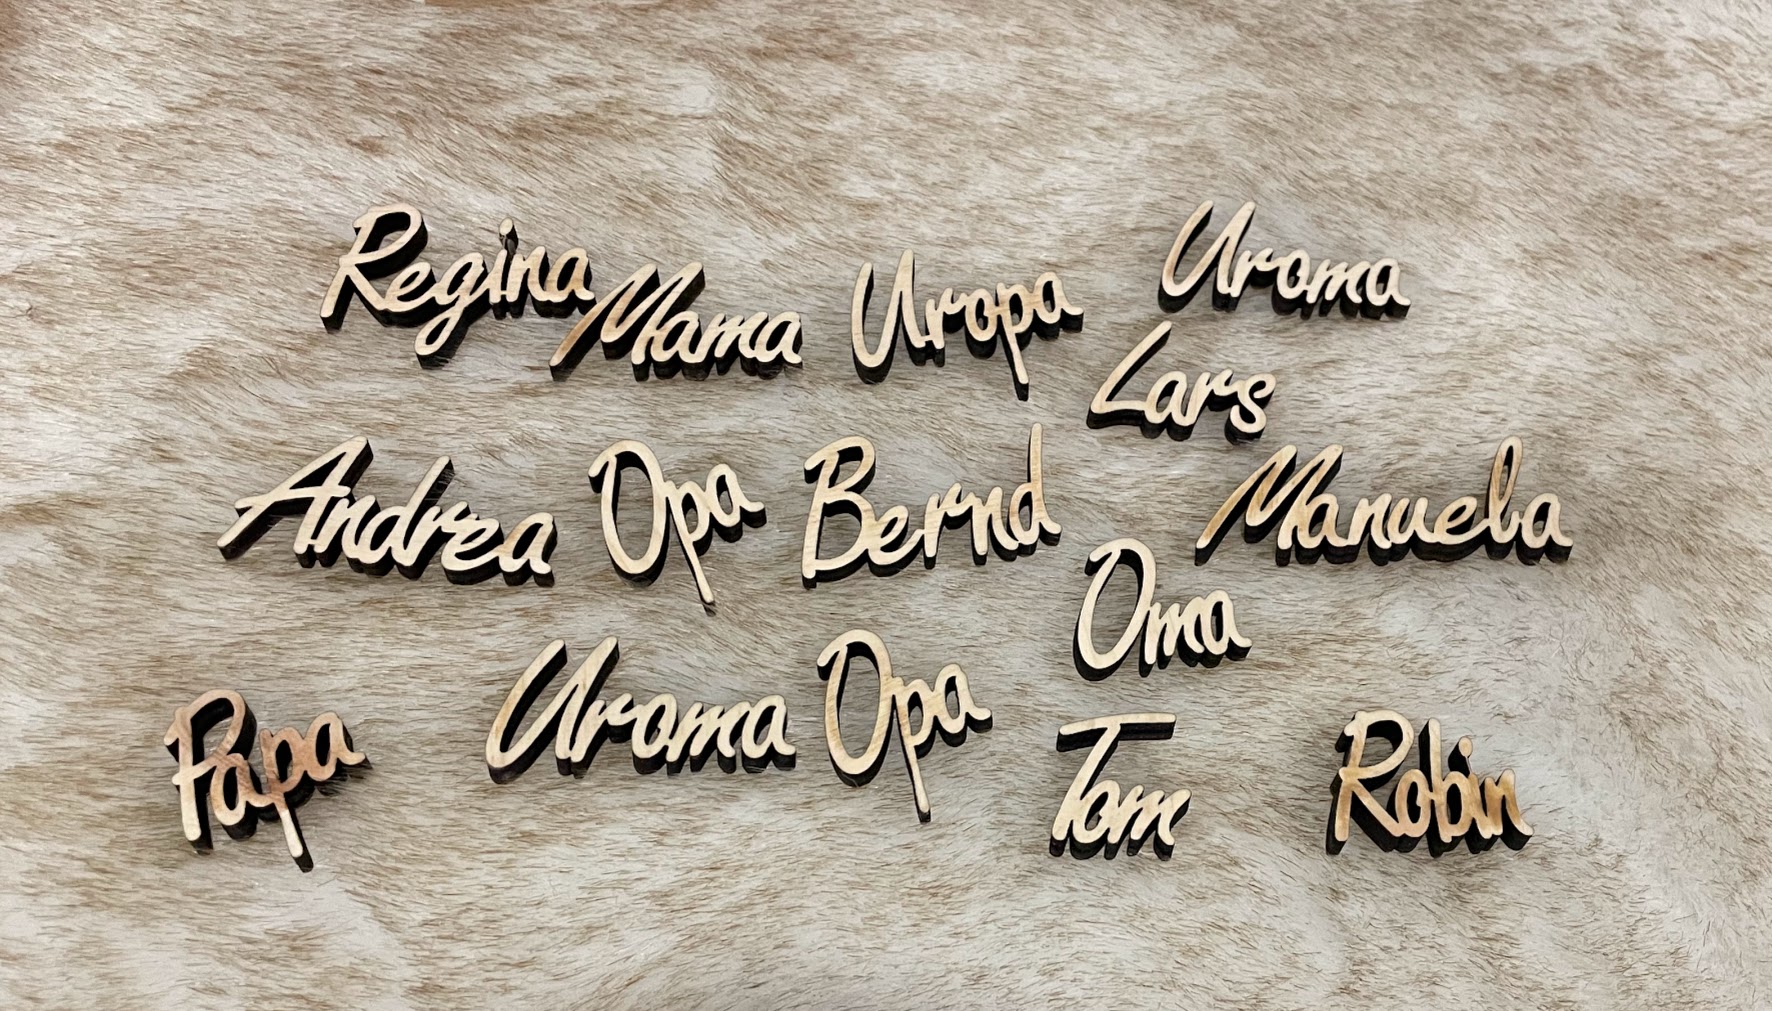 Regina Mama Uropa Uroma
Lars
Andrea Opa Bernd Manuela
Oma
Papa Uroma Opa Tom Robin